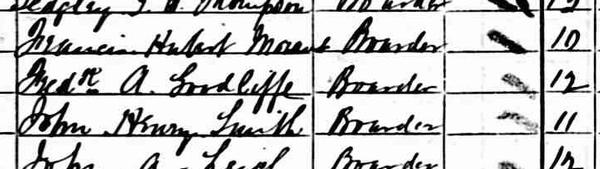 Sedgley G. H. Thompson Boarder 13
Francis Hubert Boarder 10
Fredk A. Goodliffe Boarder 12
John Henry Smith Boarder 11
John A. Boarder 12